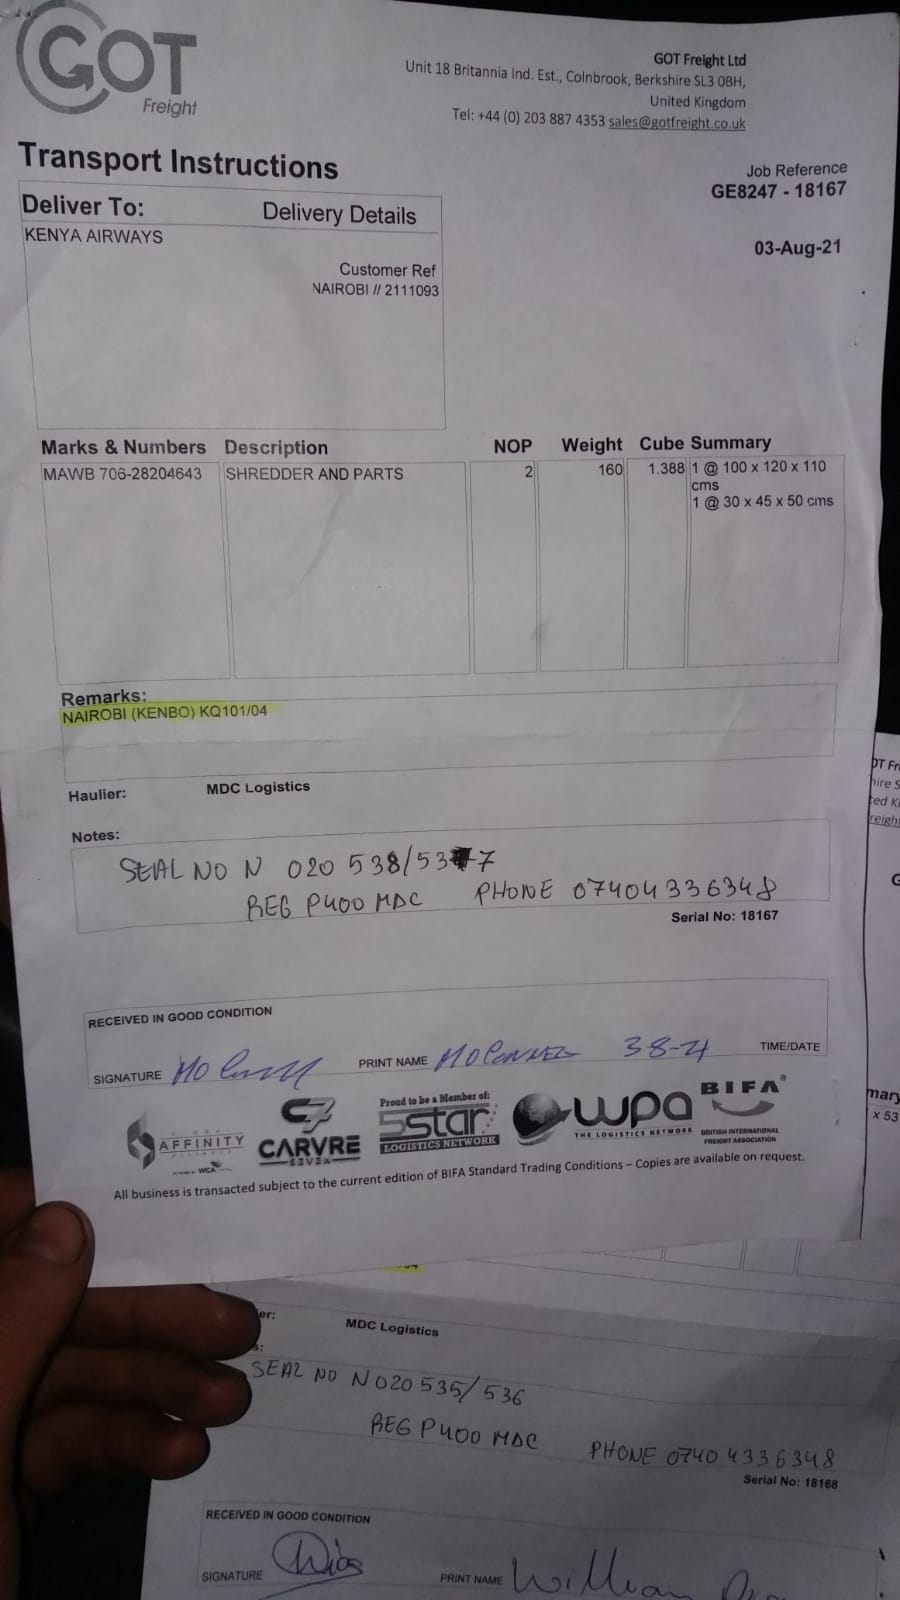 GOT
Freight
GOT Freight Ltd
Unit 18 Britannia Ind. Est., Colnbrook, Berkshire SL3 0BH,
United Kingdom
Tel: +44 (0) 203 887 4353 sales@gotfreight.co.uk
Transport Instructions
Job Reference
GE8247 - 18167
03-Aug-21
Deliver To: Delivery Details
KENYA AIRWAYS
Customer Ref
NAIROBI // 2111093
Marks & Numbers Description NOP Weight Cube Summary
MAWB 706-28204643 SHREDDER AND PARTS 2 160 1.388 1 @ 100 x 120 x 110
cms
1 @ 30 x 45 x 50 cms
Remarks:
NAIROBI (KENBO) KQ101/04
Haulier: MDC Logistics
Notes:
SEAL NO N 020 538/53 7
REG P400 MDC PHONE 07404336348
Serial No: 18167
RECEIVED IN GOOD CONDITION
SIGNATURE PRINT NAME 3-8-21 TIME/DATE
AFFINITY
WCA
C7
CARVRE
SEVEN
Proud to be a Member of:
5star
LOGISTICS NETWORK
wpa
THE LOGISTICS NETWORK
BIFA
BRITISH INTERNATIONAL
FREIGHT ASSOCIATION
All business is transacted subject to the current edition of BIFA Standard Trading Conditions – Copies are available on request.
er: MDC Logistics
s:
SEAL NO N020 535/536
REG P400 MDC PHONE 07404336348
Serial No: 18168
RECEIVED IN GOOD CONDITION
SIGNATURE PRINT NAME William
x 53